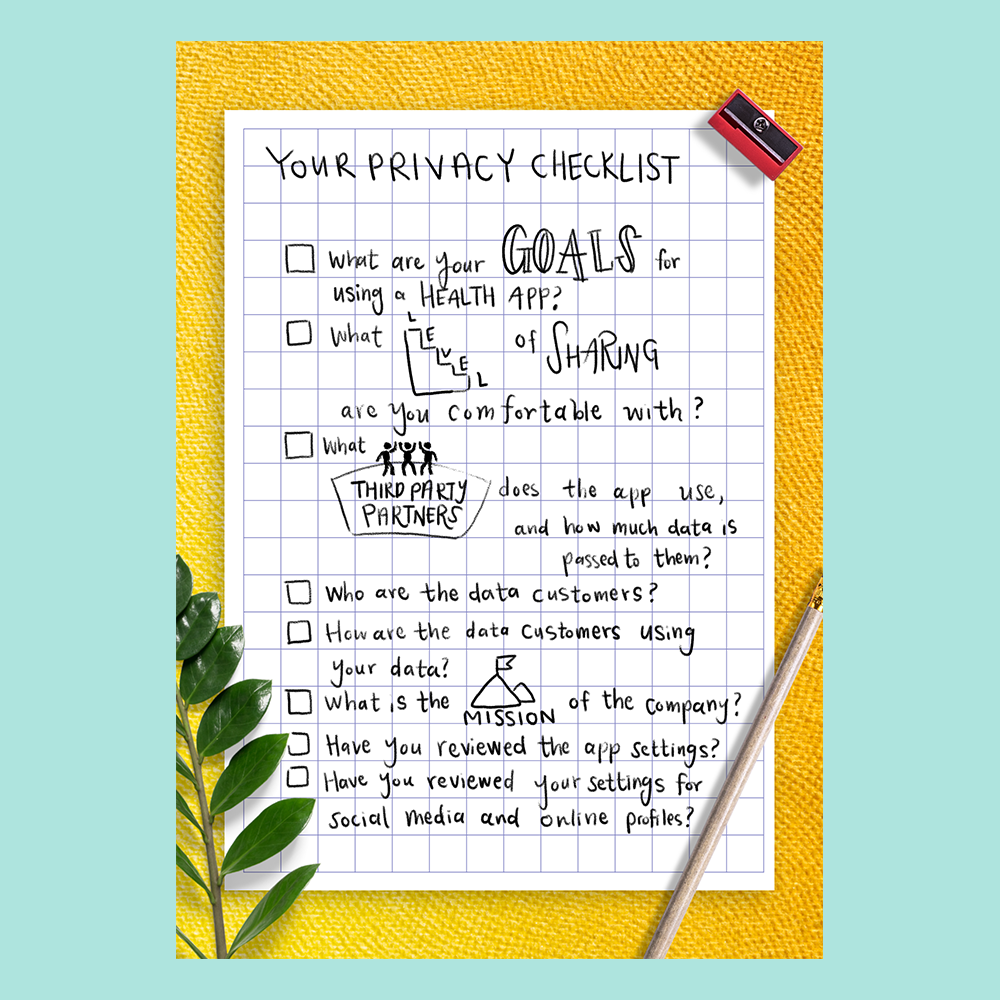 YOUR PRIVACY CHECKLIST
What are your GOALS for
using a HEALTH APP?
What LEVEL of SHARING
are you comfortable with?
What
THIRD PARTY PARTNERS does the app use,
and how much data is
passed to them?
Who are the data customers?
How are the data customers using
your data?
What is the MISSION of the company?
Have you reviewed the app settings?
Have you reviewed your settings for
social media and online profiles?